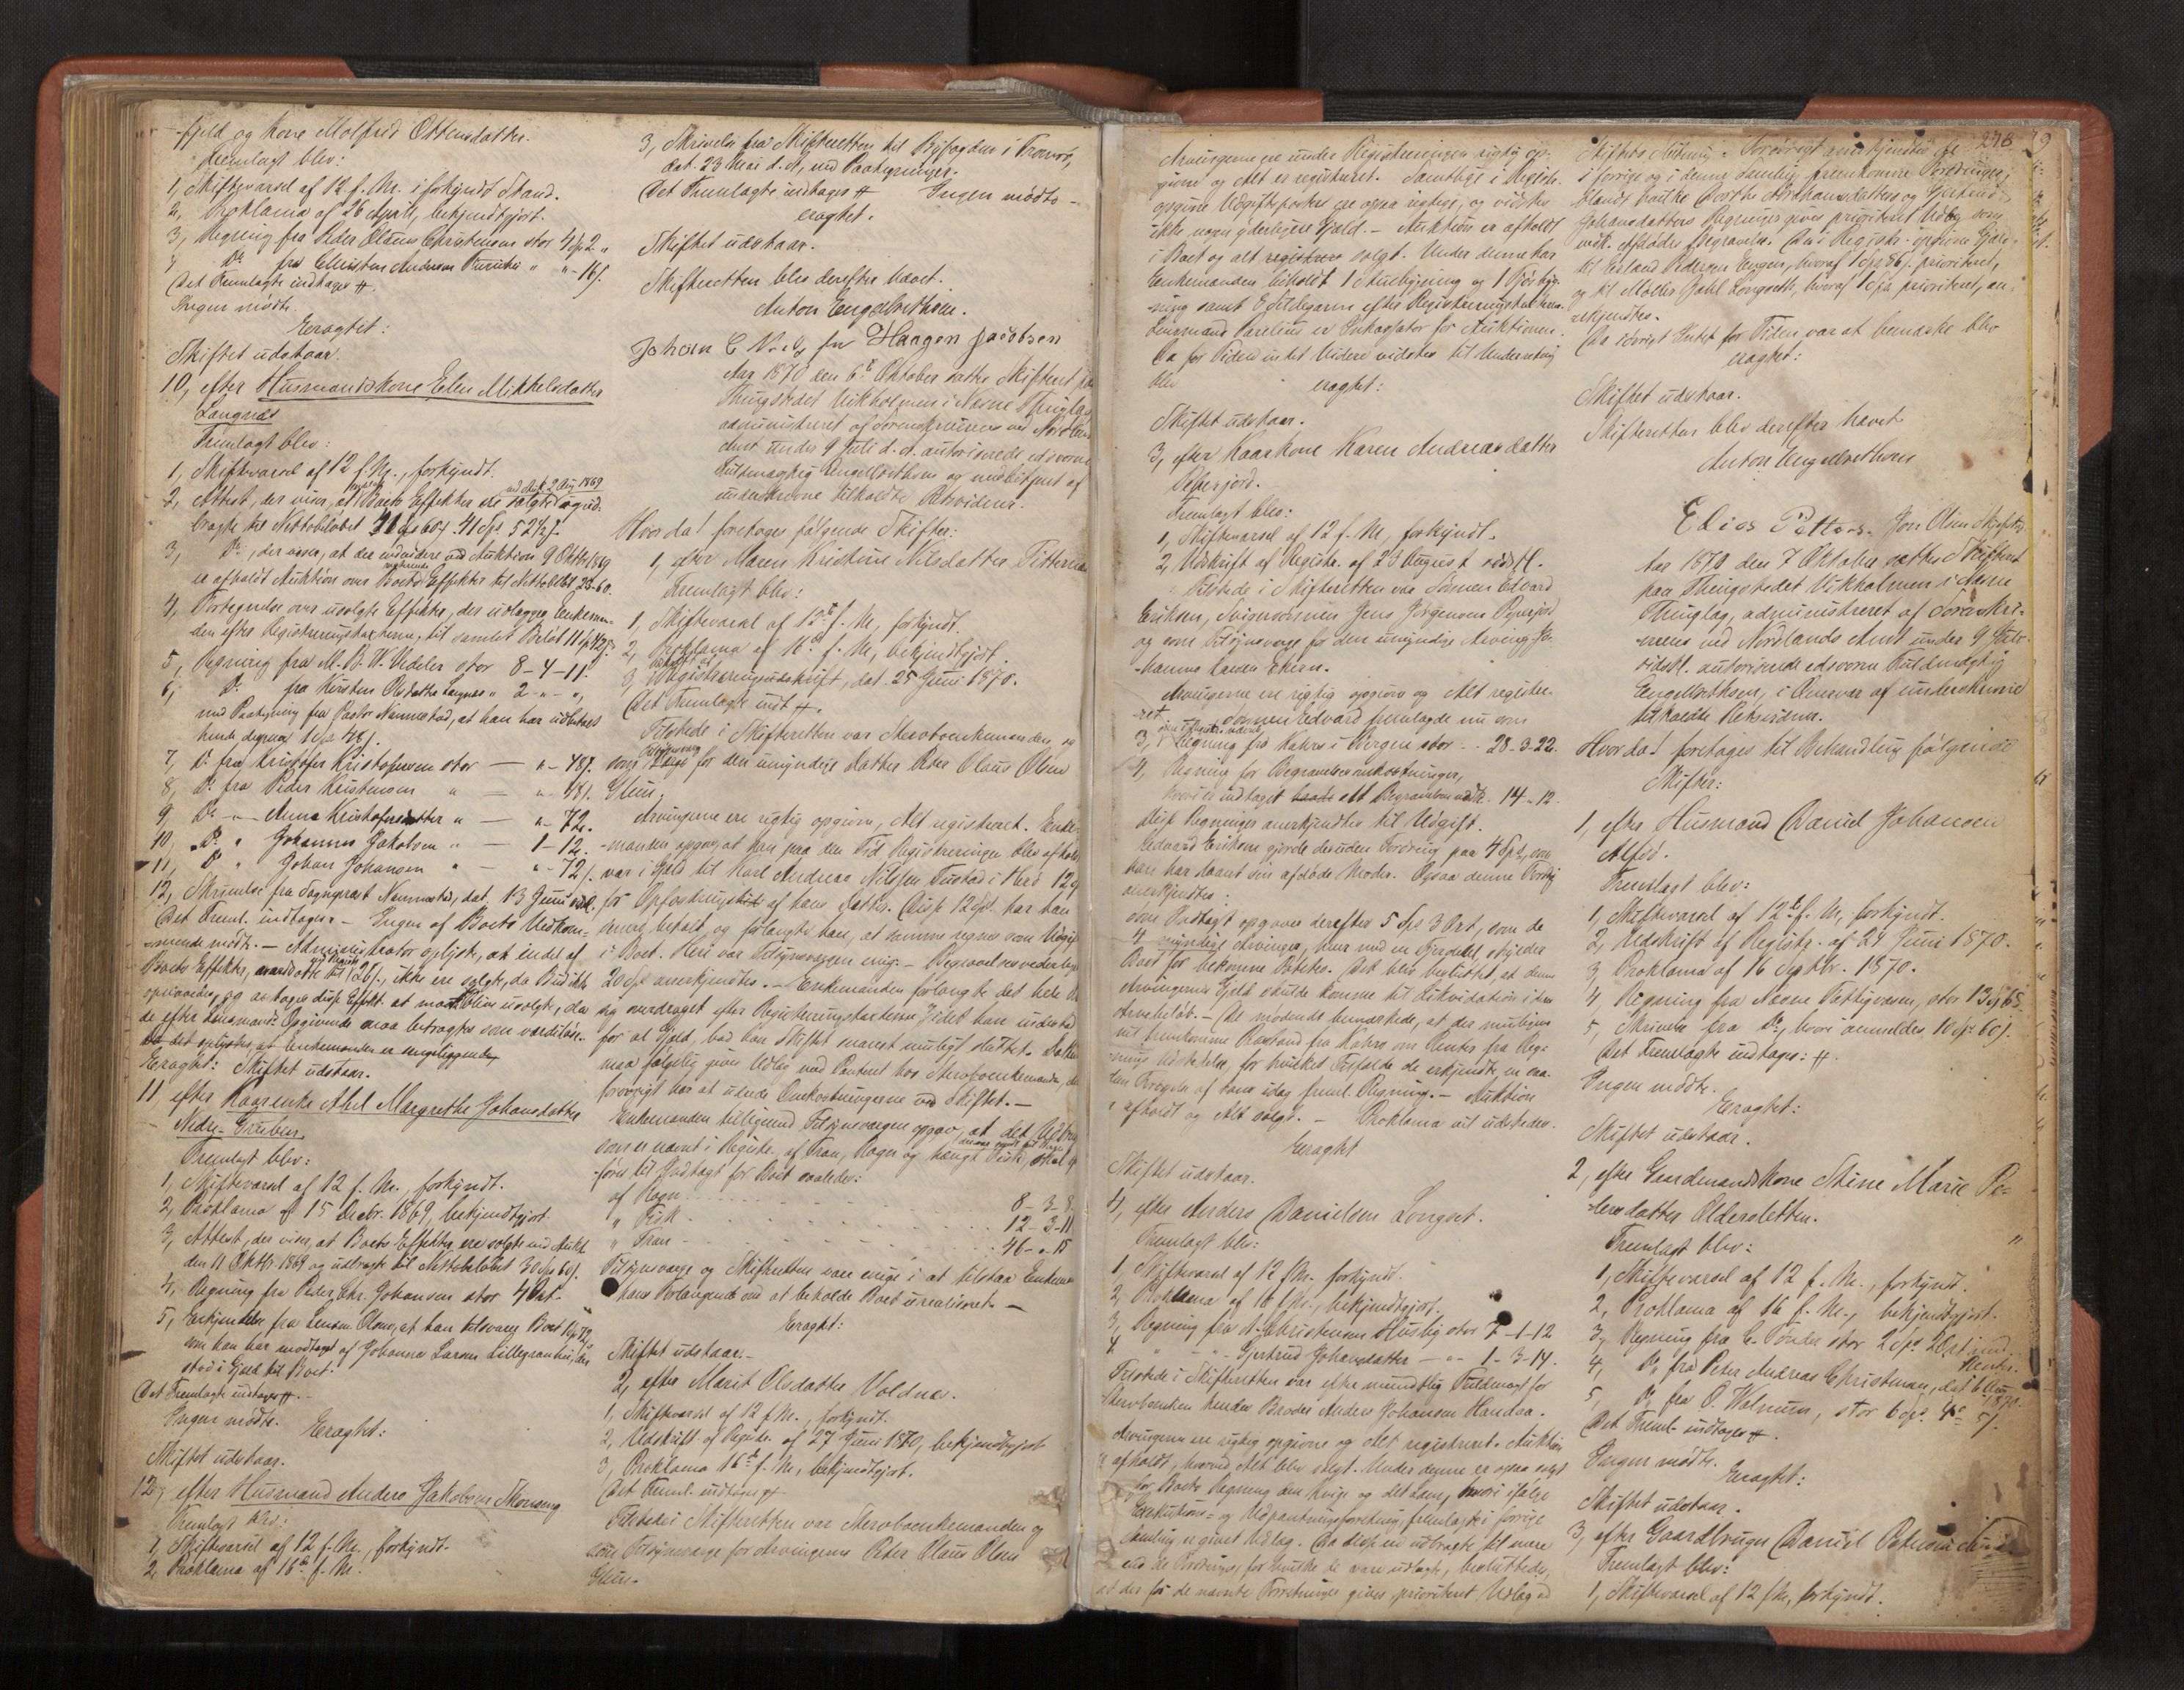 fjeld og Kone Molfrid Ottensdatter.
Fremlagt blev:
1, Skiftevarsel af 12 f. M. i forkyndt Stand.
2, Proklama af 26 April, bekjendtgjort.
3, Regning fra Peder Olaus Christensen stor 4 Sp 2 "
4 Do fra Andersen " " - 16 s.
Det Fremlagte indtages #.
Ingen mødte.
Eragtet:
Skiftet udstaar.
10, efter Husmandskone Elen Mikkelsdatter
Langnæs
Fremlagt blev:
1, Skiftevarsel af 12 f. M., forkyndt.
2, Attest, der viser, at Boets Effekter ere solgte ved Auk. 2 Aug 1869 og ud-
bragte til Nettobeløbet 41 Sp. 52½ s.
3, Do, der viser, at der endvidere ved Auktion 9 Oktbr 1869
er afholdt Auktion over Boets Effekter til Nettobeløb 23-60.
4, Fortegnelse over usolgte Effekter, der udlægges Enkeman-
den efter Registreringstaxterne, til samlet Beløb 11 Sp 42 s.
5, Regning fra M. B. W. Vedeler stor 8-4-11.
6, Do fra Kirsten Olsdatter Langnæs " 2 - " - ",
med Paategning fra Pastor Nannestad, at han har udbetalt
hende deraf 1 Sp 48 s.
7, Do fra Kristofer Kristofersen stor — " - 48 s.
8, Do fra Peder Kristensen " — " - 48 s.
9, Do " Anna Kristofersdatter " — " - 72.
10, Do " Johannes Jakobsen " — 1 - 12.
11, Do " Johan Johansen " — " - 72 s.
12, Skrivelse fra Sogneprest Nannestad, dat. 13 Juni
Det Freml. indtages. - Ingen af Boets Vedkom-
mende mødte. - Administrator oplyste, at endel af
Boets Effekter, vurderede til 126 s., ikke ere solgte, da Bud ikke
opnaaedes, og antages disse Effekt. at maatte blive usolgte, da
de efter Lensmands Opgivende maa betragtes som værdiløse.
Da det oplystes, at Enkemanden er
Eragtet: Skiftet udstaar.
11, efter Kaarenke Ahel Margrethe Johansdatter
Nedre-Gruben.
Fremlagt blev:
1, Skiftevarsel af 12 f. M., forkyndt.
2, Proklama af 15 Decbr. 1869, bekjendtgjort.
3, Attest, der viser, at Boets Effekter ere solgte ved Aukt.
den 11 Oktbr. 1869 og udbragte til Nettobeløbet 30 Sp 60 s.
4, Regning fra Peder Chr. Johansen stor 4 Ort.
5, Erkjendelse fra Lensm. Olsen, at han tilsvarer Boet
som han har modtaget af Johannes Larsen Lillegranhei, der
stod i Gjeld til Boet.
Det Fremlagte indtages #.
Ingen mødte.
Eragtet:
Skiftet udstaar.
12, efter Husmand Anders Jakobsen Skonseng
Fremlagt blev:
1, Skiftevarsel af 12 f. M., forkyndt.
2, Proklama af 16de f. M.
3, Skrivelse fra Skifteretten til Byfogden i Tromsø,
dat. 23 Mai d. A., med Paategninger.
Det Fremlagte indtages # Ingen mødte -
eragtet.
Skiftet udstaar.
Skifteretten blev derefter hævet.
Anton Engelbrethsen.
Johan C for Haagen Jacobsen
Aar 1870 den 6te Oktober sattes Skifteret paa
Thingstedet Vikholmen i Næsne Thinglag
administreret af Sorenskriveren ved Nordlands
Amt under 9 Juli d. A. autoriserede edsvorne
Fuldmægtig Engelbrethsen og medbetjent af
underskrevne tilkaldte Retsvidner.
Hvorda! foretoges følgende Skifter:
1, efter Maren Kristine Nilsdatter
Fremlagt blev:
1, Skiftevarsel af 12te f. M., forkyndt.
2, Proklama af 16de f. M., bekjendtgjort.
3, Registreringsudskrift, dat. 25 Juni 1870.
Det Fremlagte indt #.
Tilstede i Skifteretten var Stervboenkemanden og
som Tilsynsverge for den umyndige Datter Peder Olaus Olsen
Glein.
Arvingerne ere rigtig opgivne, Alt registreret. Enke-
manden opgav, at han paa den Tid Registreringen blev afholdt
var i Gjeld til Karl Andreas Nilssen Tustad i Herø 12
for Opfostring af hans Datter. Disse 12 Spd. har han
senere betalt, og forlangte han, at samme regnes som Udgift
i Boet. Heri var Tilsynsvergen enig. - Begravelsesvederlag
20 Spd anerkjendtes. - Enkemanden forlangte det hele Bo
sig overdraget efter Registreringstaxterne. Idet han indestod
for al Gjeld, bad han Skiftet snarest muligt sluttet. Datteren
maa følgelig gives Udlæg med Panteret hos Stervboenkemanden, der
forøvrigt har at udrede Omkostningerne ved Skiftet. -
Enkemanden tilligemed Tilsynsvergen opgav, at det Udbytte
som er nævnt i Registr. af Tran, Rogn og hængt Fisk, skal
føres til Indtægt for Boet saaledes:
af Rogn 8-3-8.
" Fisk 12-3-11
" Tran 46-"-15
Tilsynsverge og Skifteretten vare enige i at tilstaa Enkeman
hans Forlangende om at beholde Boet urealiseret. -
Eragtet:
Skiftet udstaar. -
2, efter Marit Olsdatter Voldnes.
1, Skiftevarsel af 12 f. M., forkyndt.
2, Udskrift af Registr. af 27 Juni 1870, bekjendtgjort
3, Proklama 16de f. M., bekjendtgjort.
Det Freml. indtages #
Tilstede i Skifteretten var Stervboenkemanden og
som Tilsynsverge for Arvingerne Peter Olaus Olsen
Glein.
Arvingerne ere under Registreringen rigtig op-
givne og Alt er registreret. Samtlige i Registr.
opgivne Udgiftsposter ere ogsaa rigtige, og vidstes
ikke noen yderligere Gjeld. - Auktion er afholdt
i Boet og alt registrere solgt. Under denne har
Enkemanden beholdt 1 Stuebygning og 1 Fjøsbyg-
ning samt efter Registreringstaxterne.
Lensmand Parelius er Inkassator for Auktionen.
Da for Tiden intet Videre vidstes til Underretning
blev eragtet:
Skiftet udstaar.
3, efter Kaarkone Karen Andreasdatter
Fremlagt blev:
1, Skiftevarsel af 12 f. M., forkyndt.
2, Udskrift af Registr. af 23 August sidstl.
Tilstede i Skifteretten var Sønnen Edvard
Eriksen, Svigersønnen Jens Jørgensen
og som Tilsynsverge for den umyndige Arving Jo-
hanna
Arvingerne ere rigtig opgivne og Alt registre-
ret. Sønnen Edvard fremlagde nu som
3, Regning fra Kahrs i Bergen stor - - 28-3-22.
4, Regning for Begravelsesomkostninger,
hvori er indtaget baade alt Begravelsen vedk. 14-12.
Disse Regninger anerkjendtes til Udgift.
Edvard Eriksen gjorde desuden Fordring paa 4 Spd, som
han har laant sin afdøde Moder. Ogsaa denne Fordring
anerkjendtes.
Som Indtægt opgaves derefter 5 Spd 3 Ort, som de
4 myndige Arvinger, hver med en Fjerdedel, skylder
Boet for bekomne Poteter. Det blev besluttet, at denne
Arvingernes Gjeld skulde komme til Likvidation i den
Arvebeløb. - De mødende bemærkede, at der muligens
vil fremkomme Paastand fra Kahrs om Renter fra Reg-
nings Udstedelse, for hvilket Tilfælde de erkjendte en saa-
dan Forøgelse af hans idag freml. Regning. - Auktion
er afholdt og Alt solgt. - Proklama vil udstedes.
Eragtet
Skiftet udstaar.
4, efter Anders Danielsen Longset.
Fremlagt blev:
1, Skiftevarsel af 12 f. M. forkyndt.
2, Proklama af 16 f. M., bekjendtgjort.
3, Regning fra A. Christensen Husby stor 7-1-12
4, " " - Gjertrud Johansdatter — " - 1-3-14.
Tilstede i Skifteretten var efter mundtlig Fuldmagt for
Stervboenken hendes Broder Anders Johansen Handaa.
Arvingerne ere rigtig opgivne og Alt registreret. Auktion
er afholdt, hvorved Alt blev solgt. Under denne er ogsaa solgt
for Boets Regning den Kvige og det Lam, hvori ifølge
Exekutions- og Udpantningsforretning, fremlagte i forrige
Samling er givet Udlæg. Da disse ei udbragtes til mere
end de Fordringer, for hvilke de vare udlagte, besluttedes,
at der for de nævnte Forretninger gives prioriteret Udlæg ved
248
Skiftets Slutning. Forøvrigt anerkjendtes de
i forrige og i denne Samling fremkomne Fordringer,
blandt hvilke Dorthe Abrahamsdatters og Gjertrud
Johansdatters Regninger gives prioriteret Udlæg som
vedk. Afdødes Begravelse. Den i Registr. opgivne Gjeld
til Erland Pedersen Engen, hvoraf 1 Spd 36 s. prioriteret,
og til Møller Dahl Longseth, hvoraf 1 Spd prioriteret, an-
erkjendtes.
Da iøvrigt Intet for Tiden var at bemærke blev
eragtet:
Skiftet udstaar.
Skifteretten blev derefter hævet
Anton Engelbrethsen
Elias Petters. Jon Olsen
Aar 1870 den 7 Oktober sattes Skifteret
paa Thingstedet Vikholmen i Næsne
Thinglag, administreret af Sorenskri-
veren ved Nordlands Amt under 9 Juli
sidstl. autoriserede edsvorne Fuldmægtig
Engelbrethsen, i Overvær af underskrevne
tilkaldte Retsvidner.
Hvorda! foretoges til Behandling følgende
Skifter:
1, efter Husmand Daniel Johansen
Alsø.
Fremlagt blev:
1, Skiftevarsel af 12te f. M., forkyndt.
2, Udskrift af Registr. af 24 Juni 1870.
3, Proklama af 16 Septbr. 1870.
4, Regning fra Næsne Fattigvæsen, stor 13
5, Skrivelse fra Do, hvori anmeldes 10 Spd 60 s.
Det Fremlagte indtages: #.
Ingen mødte.
Eragtet:
Skiftet udstaar.
2, efter Gaardmandskone Stine Marie Pe-
dersdatter Oldersletten.
Fremlagt blev:
1, Skiftevarsel af 12 f. M., forkyndt.
2, Proklama af 16 f. M., bekjendtgjort.
3, Regning fra C. stor 2 Spd 2 Ort
4, Do fra Peter Andreas Christensen, dat. 6 Aug 1870.
5, Do fra O. Walnum, stor 6 Spd. 4 5 s.
Det Freml. indtages #.
Ingen mødte.
Eragtet:
Skiftet udstaar.
3, efter Gaardbruger Daniel Petersen
Fremlagt blev:
1, Skiftevarsel af 12 f. M., forkyndt.